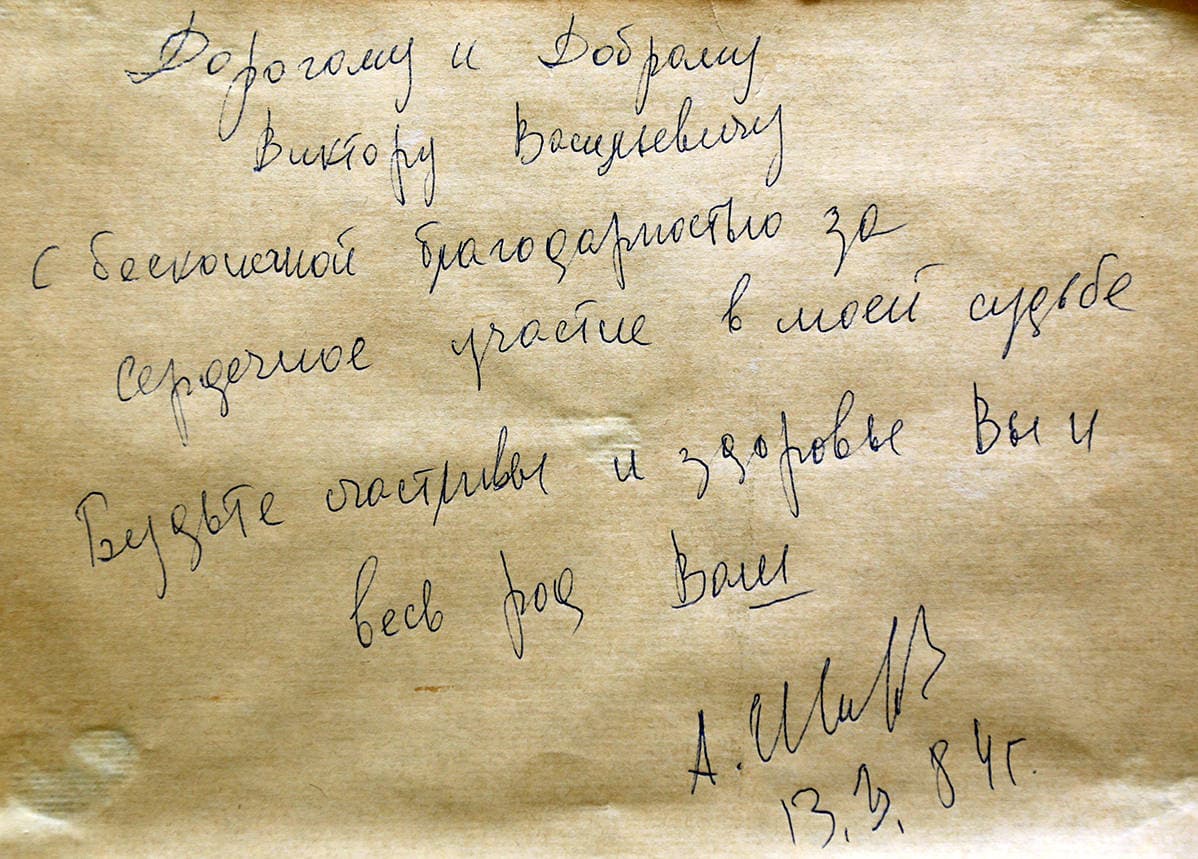 Дорогому и Доброму
Виктору Васильевичу
с бесконечной благодарностью за
сердечное участие в моей судьбе
Будьте счастливы и здоровы Вы и
весь род Ваш
А.
13.3.84г.